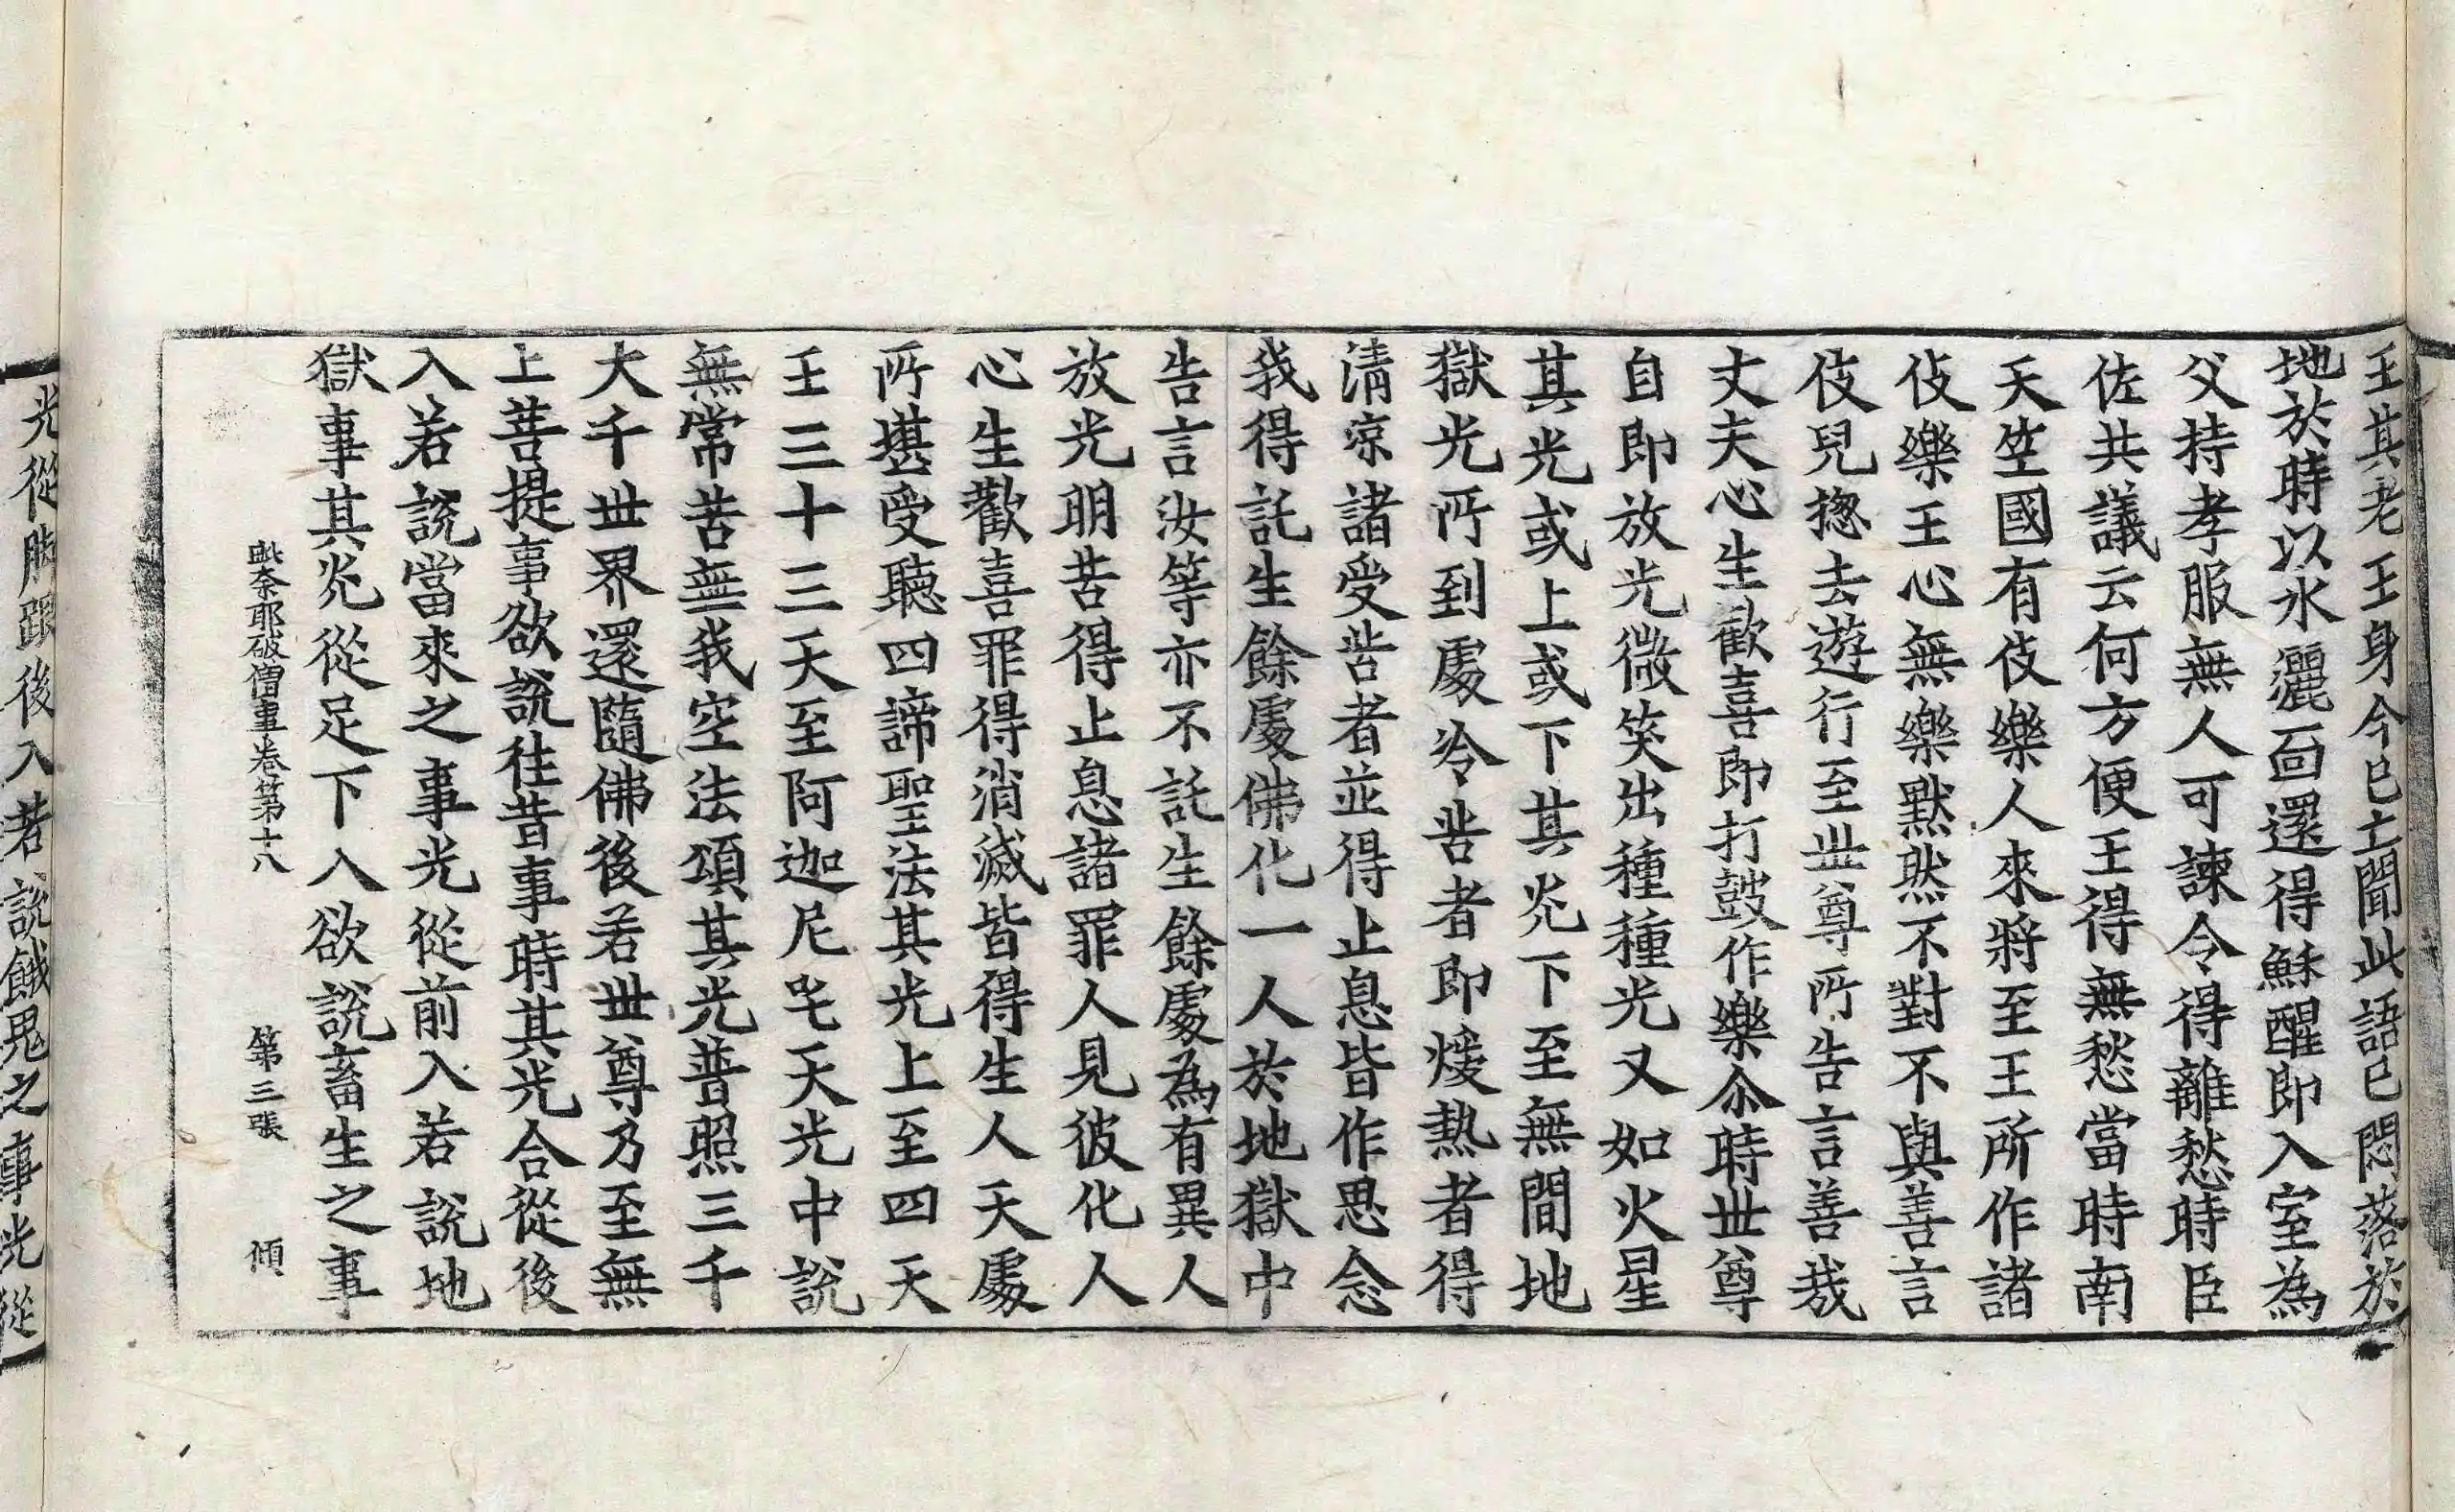 王其老王身今已亡聞此語已悶落於
地於時以水灑面還得穌醒即入室為
父持孝服無人可諫令得離愁時臣
佐共議云何方便王得無愁當時南
天竺國有伎樂人來將至王所作諸
伎樂王心無樂默然不對不與善言
伎兒揔去遊行至世尊所告言善哉
丈夫心生歡喜即打鼓作樂尒時世尊
自即放光微笑出種種光又如火星
其光或上或下其光下至無間地
獄光所到處冷苦者即煖熱者得
清涼諸受苦者並得止息皆作思念
我得託生餘處佛化一人於地獄中
告言汝等亦不託生餘處為有異人
放光明苦得止息諸罪人見彼化人
心生歡喜罪得消滅皆得生人天處
所堪受聽四諦聖法其光上至四天
王三十三天至阿迦尼吒天光中說
無常苦無我空法頌其光普照三千
大千世界還隨佛後若世尊乃至無
上菩提事欲說往昔事時其光合從後
入若說當來之事光從前入若說地
獄事其光從足下入欲說畜生之事
毗奈耶破僧事卷第十八 第三張 傾
光從脚跟後入若說餓鬼之事光從